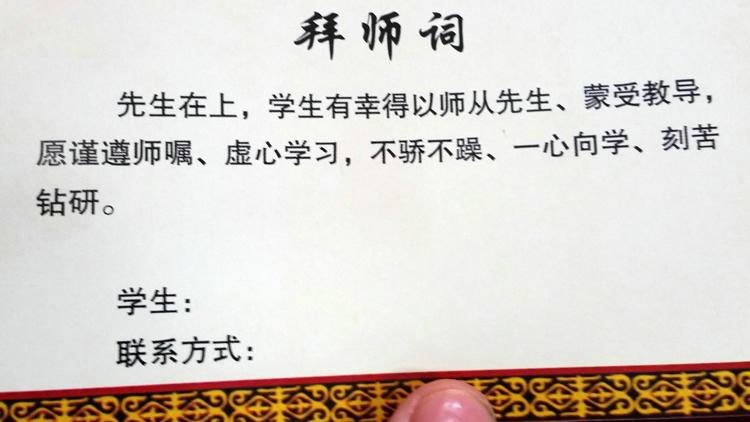 拜师词
先生在上，学生有幸得以师从先生、蒙受教导，
愿谨遵师嘱、虚心学习，不骄不躁、一心向学、刻苦
钻研。
学生：
联系方式：